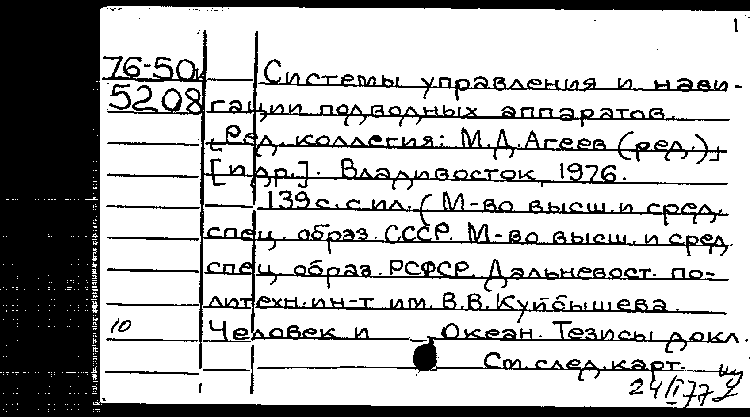 1
76-50и Системы управления и нави-
5208 гации подводных аппаратов.
[Ред. коллегия: М.Д.Агеев (ред.)]
[и др.]. Владивосток, 1976.
139 с. с ил. (М-во высш. и сред.
спец. образ. СССР. М-во высш. и сред.
спец. образ. РСФСР. Дальневост. по-
литехн. ин-т им. В.В.Куйбышева.
10 Человек и Океан. Тезисы докл.
См. след. карт.
24/I 77